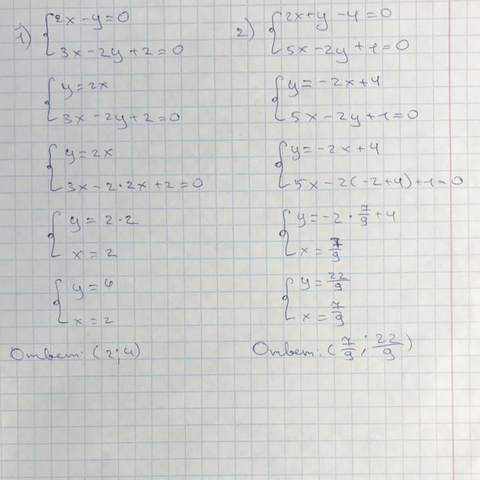 1) { 2x - y = 0
3x - 2y + 2 = 0
{ y = 2x
3x - 2y + 2 = 0
{ y = 2x
3x - 2 · 2x + 2 = 0
{ y = 2 · 2
x = 2
{ y = 4
x = 2
Ответ: (2; 4)
2) { 2x + y - 4 = 0
5x - 2y + 1 = 0
{ y = -2x + 4
5x - 2y + 1 = 0
{ y = -2x + 4
5x - 2(-2+4) + 1 = 0
{ y = -2 · 7/9 + 4
x = 7/9
{ y = 22/9
x = 7/9
Ответ: (7/9; 22/9)